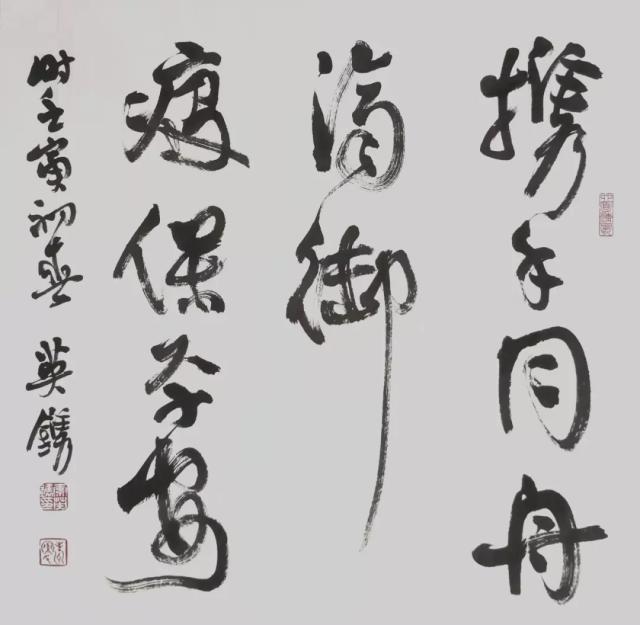 携手同舟
济御
疫保平安
时壬寅初春 英镌